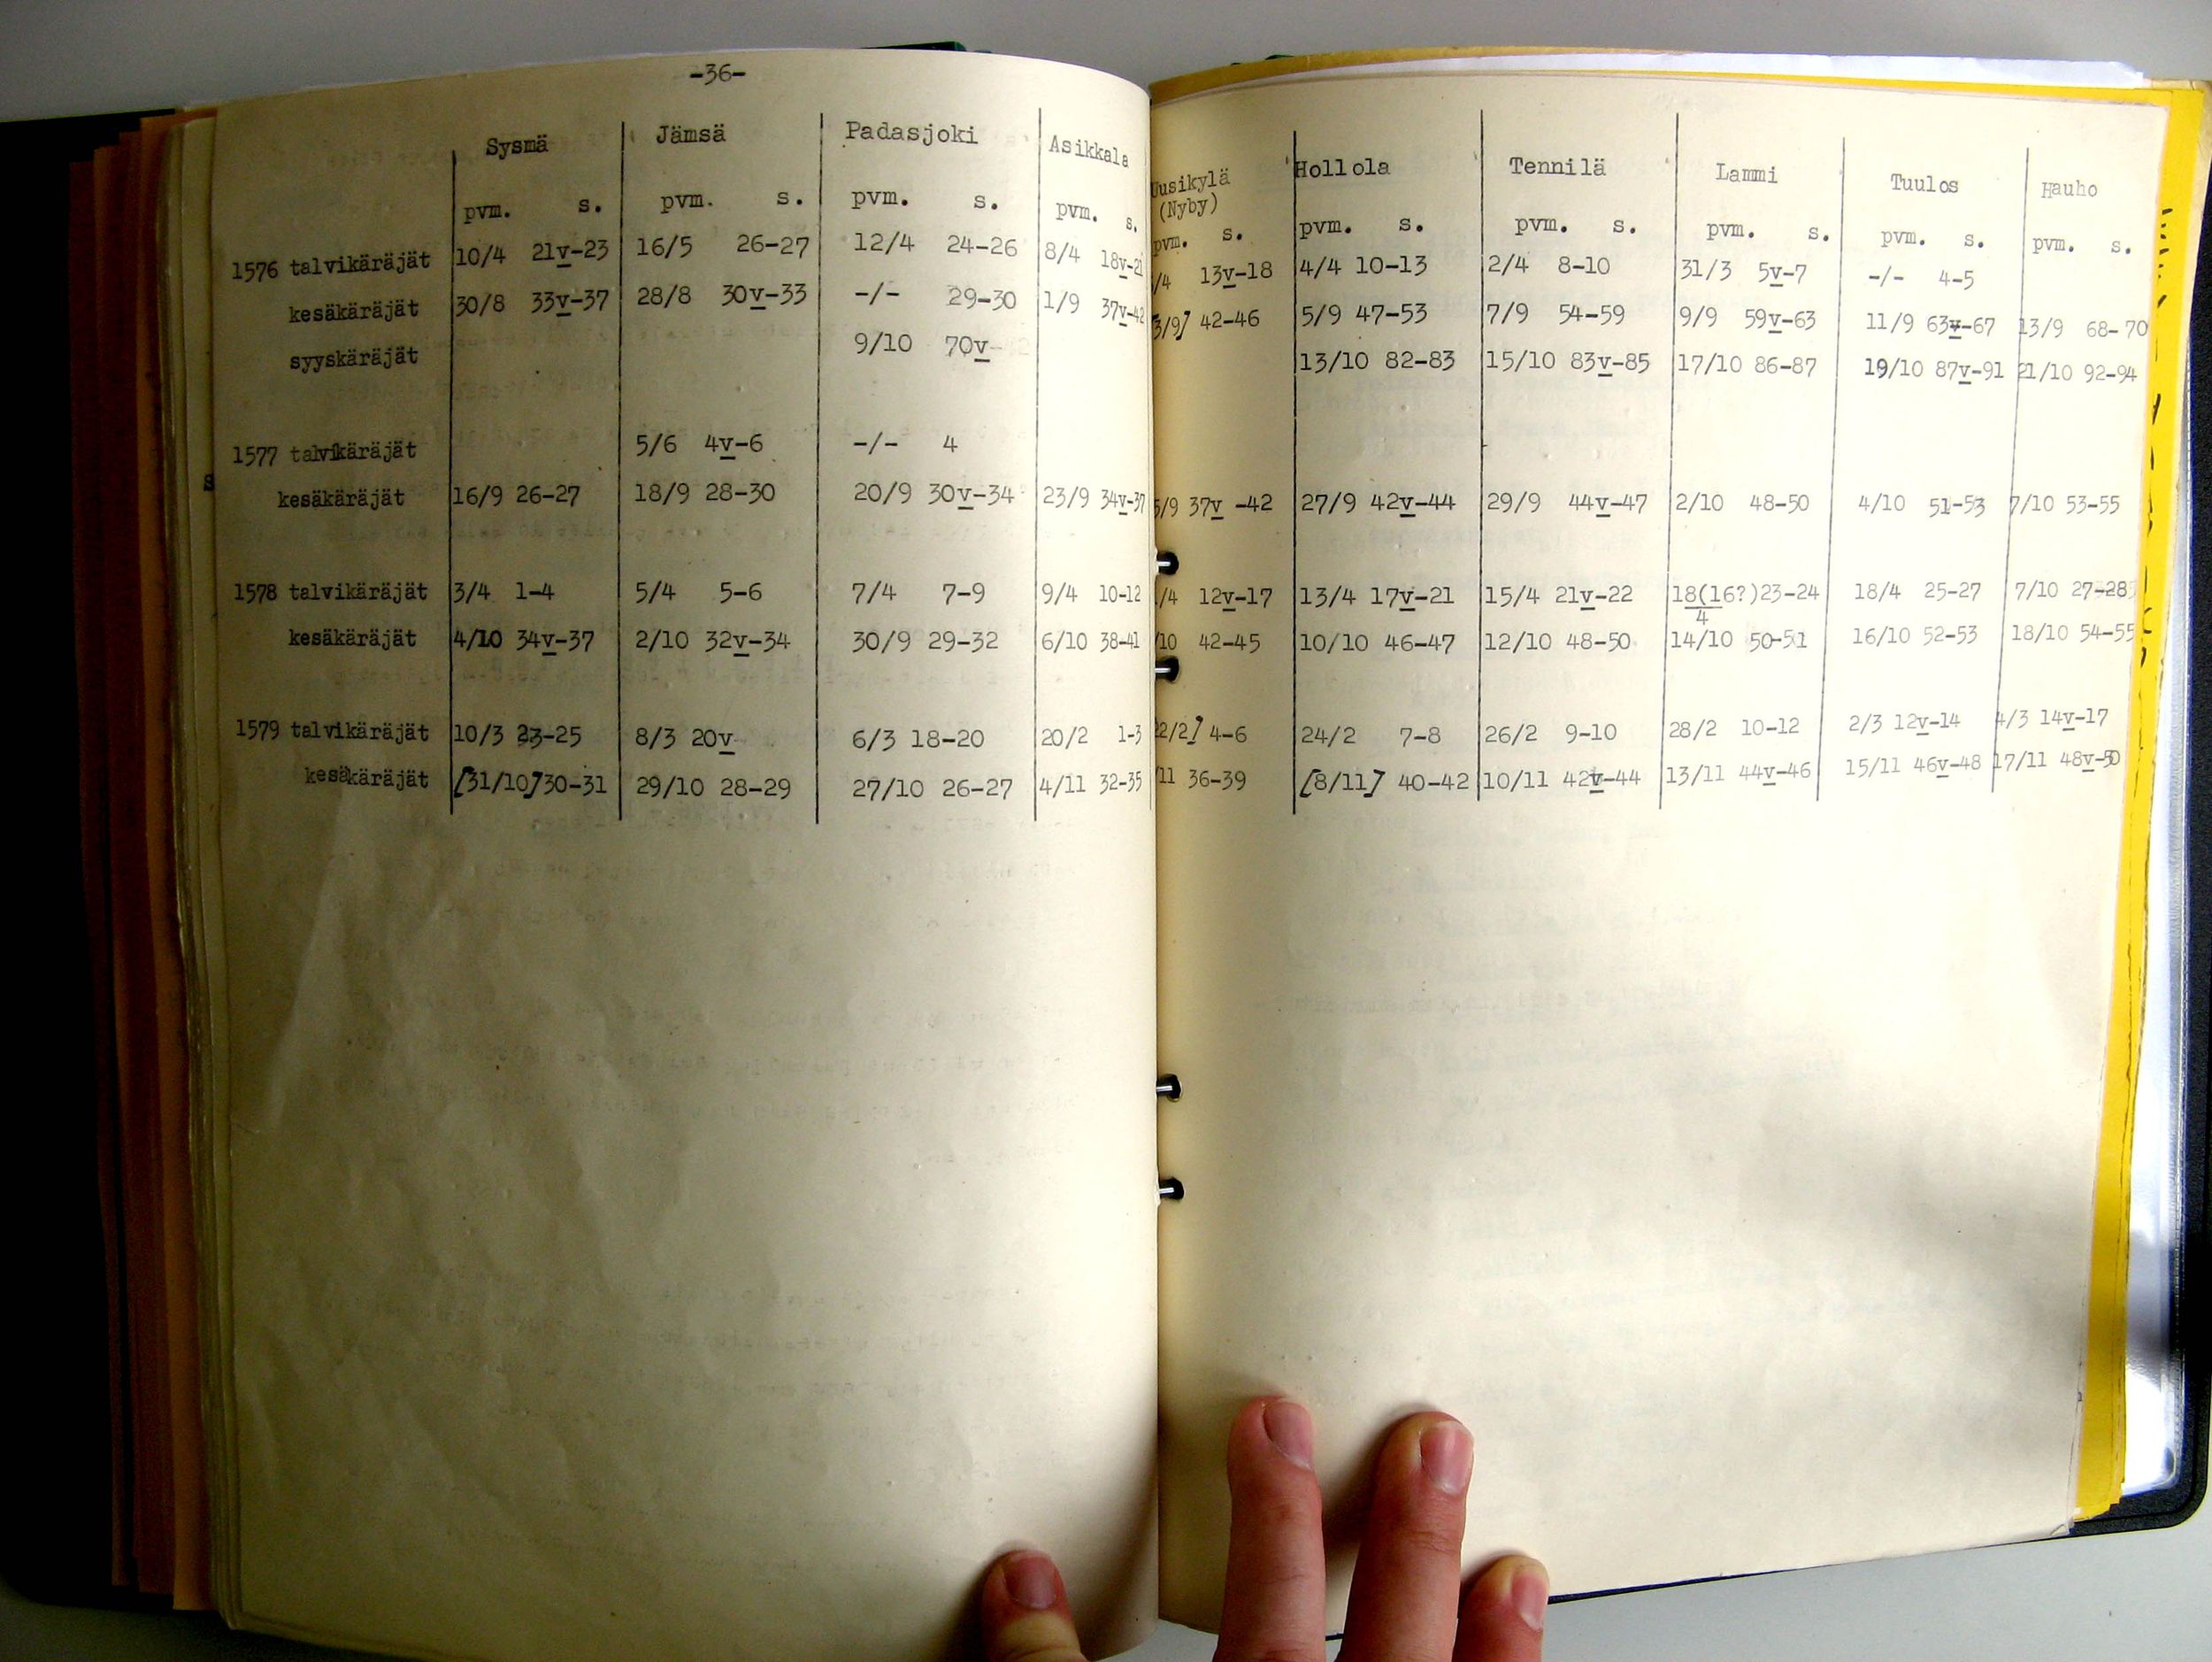 -36-
Sysmä Jämsä Padasjoki Asikkala Uusikylä Hollola Tennilä Lammi Tuulos Hauho
(Nyby)
pvm. s. pvm. s. pvm. s. pvm. s. pvm. s. pvm. s. pvm. s. pvm. s. pvm. s. pvm. s.
1576 talvikäräjät 10/4 21v-23 16/5 26-27 12/4 24-26 8/4 18v-21 /4 13v-18 4/4 10-13 2/4 8-10 31/3 5v-7 -/- 4-5
kesäkäräjät 30/8 33v-37 28/8 30v-33 -/- 29-30 1/9 37v-42 3/9] 42-46 5/9 47-53 7/9 54-59 9/9 59v-63 11/9 63v-67 13/9 68-70
syyskäräjät 9/10 70v- 13/10 82-83 15/10 83v-85 17/10 86-87 19/10 87v-91 21/10 92-94
1577 talvikäräjät 5/6 4v-6 -/- 4
kesäkäräjät 16/9 26-27 18/9 28-30 20/9 30v-34 23/9 34v-37 5/9 37v-42 27/9 42v-44 29/9 44v-47 2/10 48-50 4/10 51-53 7/10 53-55
1578 talvikäräjät 3/4 1-4 5/4 5-6 7/4 7-9 9/4 10-12 /4 12v-17 13/4 17v-21 15/4 21v-22 18(16?)23-24 18/4 25-27 7/10 27-28
4
kesäkäräjät 4/10 34v-37 2/10 32v-34 30/9 29-32 6/10 38-41 /10 42-45 10/10 46-47 12/10 48-50 14/10 50-51 16/10 52-53 18/10 54-55
1579 talvikäräjät 10/3 23-25 8/3 20v- 6/3 18-20 20/2 1-3 22/2] 4-6 24/2 7-8 26/2 9-10 28/2 10-12 2/3 12v-14 4/3 14v-17
kesäkäräjät [31/10]30-31 29/10 28-29 27/10 26-27 4/11 32-35 /11 36-39 [8/11] 40-42 10/11 42v-44 13/11 44v-46 15/11 46v-48 17/11 48v-50